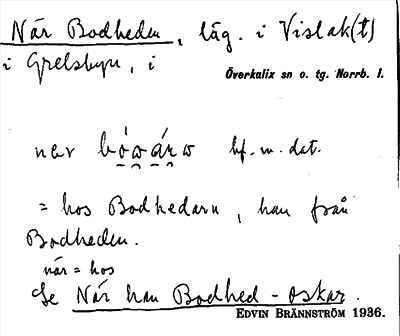 När Bodheden, läg. i Vislak(t)
i Grelsbyn, i
Överkalix sn o. tg. Norrb. l.
bf. m. dat.
= hos Bodhedarn, han från
Bodheden.
när = hos
Se När han Bodhed - Oskar.
EDVIN BRÄNNSTRÖM 1936.